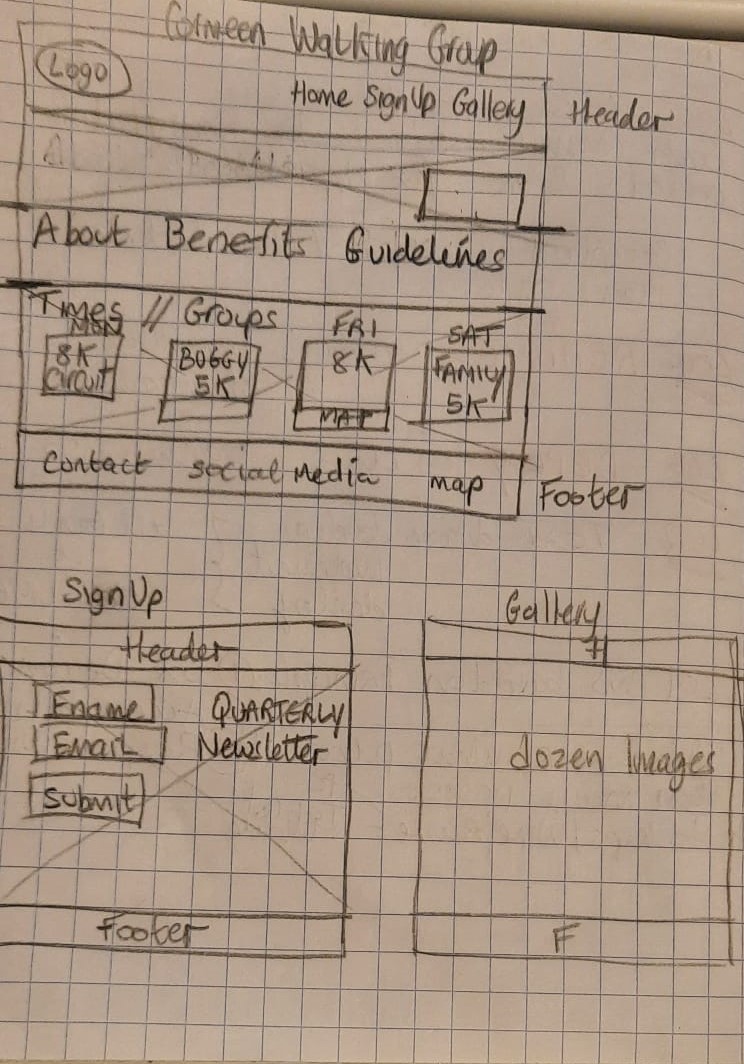 Walking Group
Logo
Home SignUp Gallery
Header
About Benefits Guidelines
Times // Groups
MON
FRI
SAT
8K
Circuit
BUGGY
5K
8K
MAP
FAMILY
5K
Contact social Media map
Footer
SignUp
Header
Fname
QUARTERLY
Email
Newsletter
Submit
Footer
Gallery
H
dozen Images
F